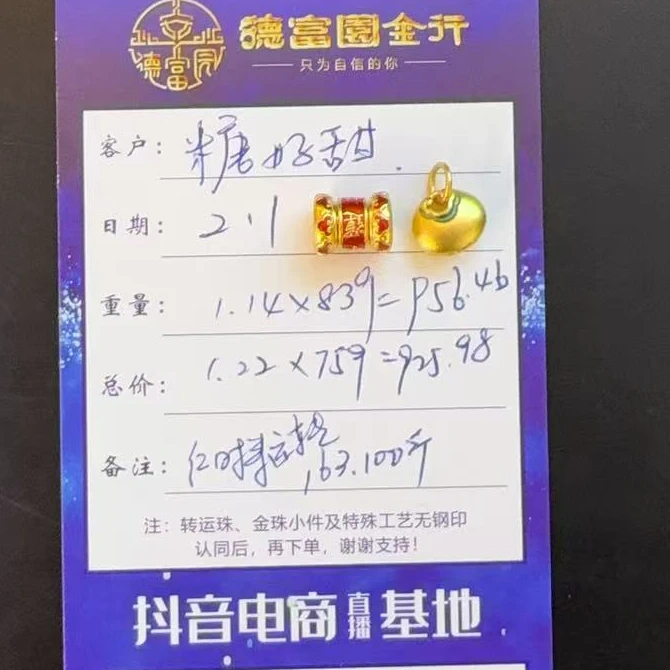 德富園金行
只为自信的你
客户: 糖好甜.
日期: 2·1
重量: 1.14×839=956.46
总价: 1.22×759=925.98
备注:
163.100斤
注:转运珠、金珠小件及特殊工艺无钢印
认同后,再下单,谢谢支持!
抖音电商直播基地